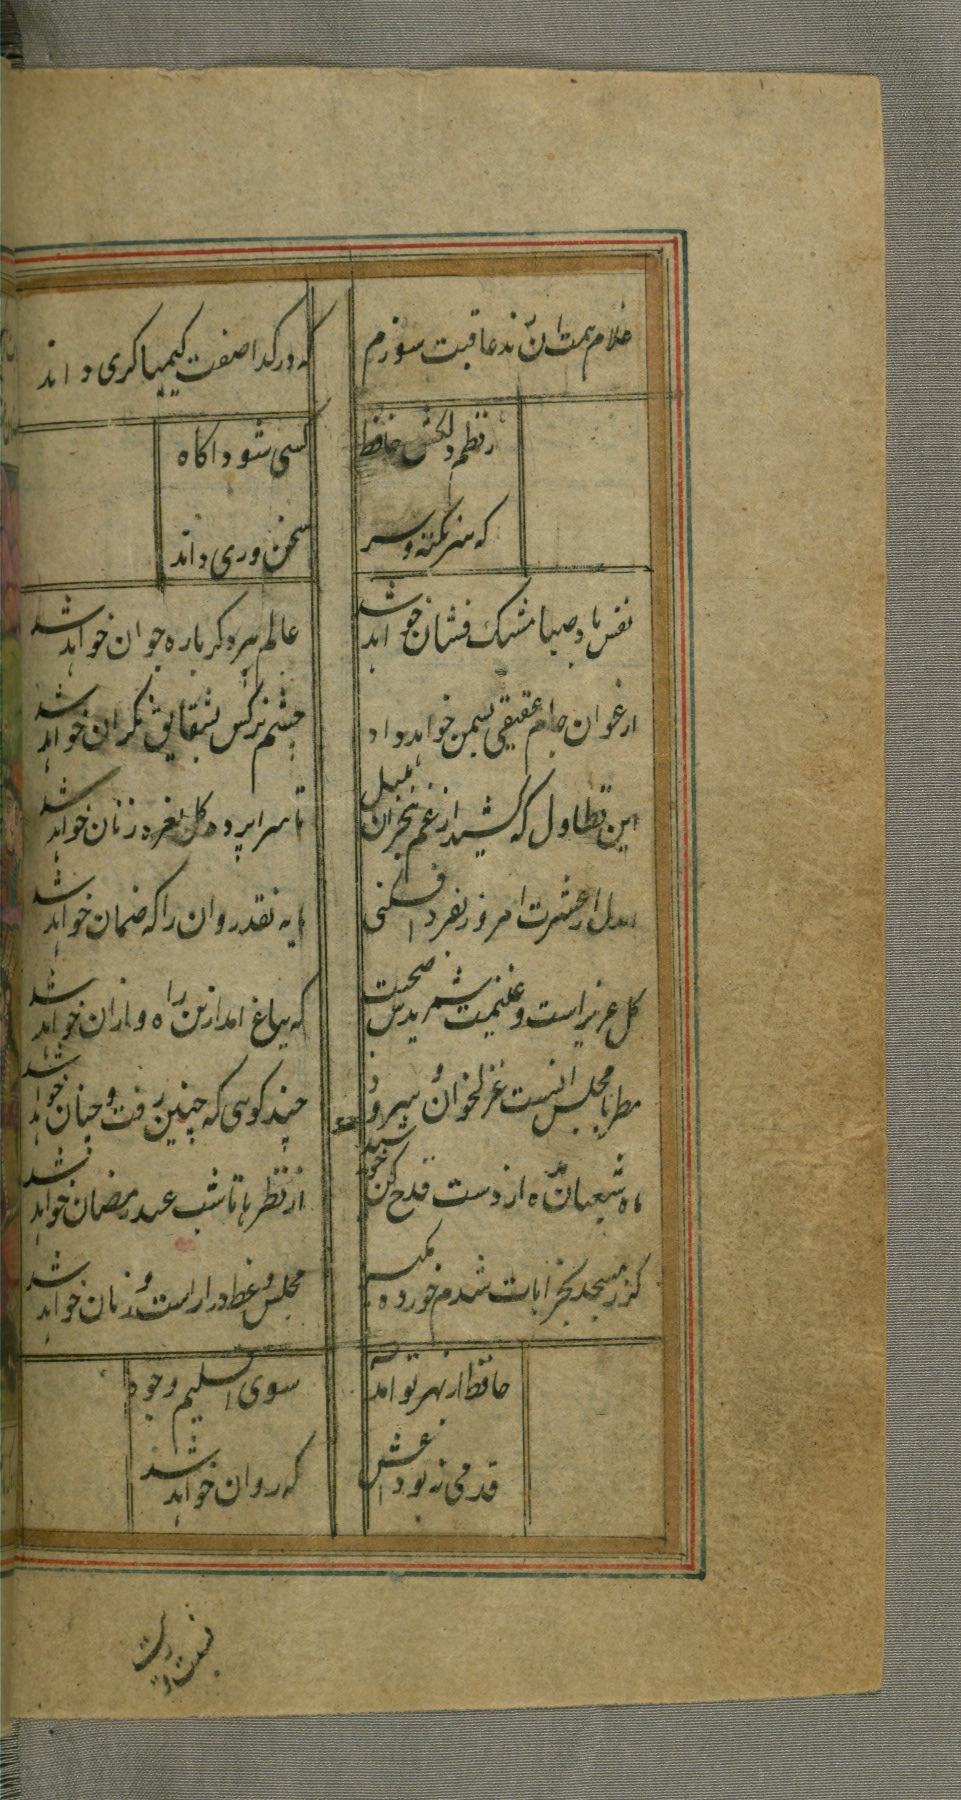 غلام همت آن رند عاقبت سوزم
که در کدا صفت کیمیاکری داند
ز نظم دلکش حافظ
کسی شود اکاه
که سر نکته و سر
سخن وری داند
نفس باد صبا مشک فشان خواهد شد
عالم پیر دکر باره جوان خواهد شد
ارغوان جام عقیقی بسمن خواهد داد
چشم نرکس بشقایق نکران خواهد شد
این تطاول که کشید از غم هجران بلبل
تا سراپرده کل نعره زنان خواهد شد
ایدل ار عشرت امروز بفردا فکنی
مایه نقد روان را که ضمان خواهد شد
کل عزیز است و غنیمت شمریدش صحبت
که بباغ امد ازین راه و ازان خواهد شد
مطربا مجلس انست غزلخوان و سرود
چند کوی که چنین رفت و چنان خواهد شد
ماه شعبان مده از دست قدح کن خورشید
از نظر ها تا شب عید رمضان خواهد شد
کز مسجد بخرابات شدم خورده مکیر
مجلس وعظ دراز است و زمان خواهد شد
حافظ از بهر تو امد
سوی اقلیم وجود
قدمی نه بوداعش
که روان خواهد شد
نیست در